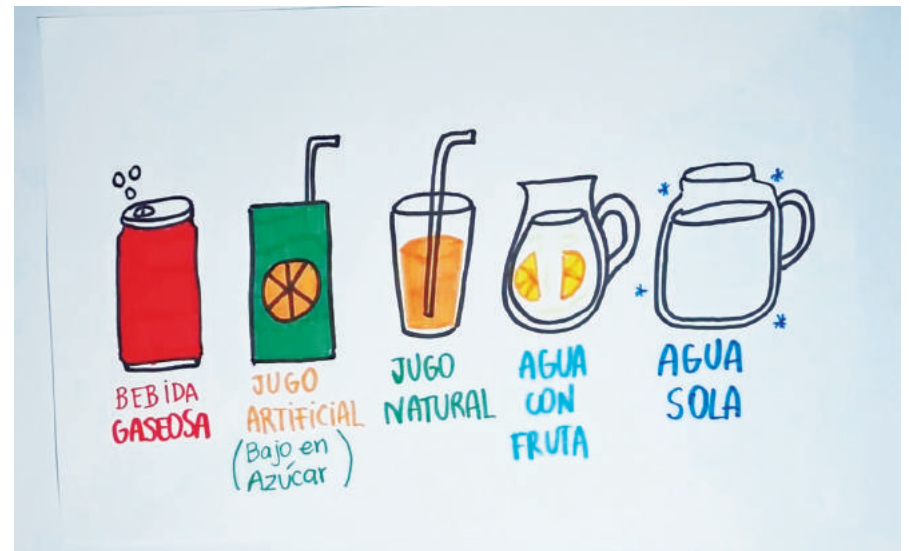 BEBIDA
GASEOSA
JUGO
ARTIFICIAL
(Bajo en
Azúcar)
JUGO
NATURAL
AGUA
CON
FRUTA
AGUA
SOLA